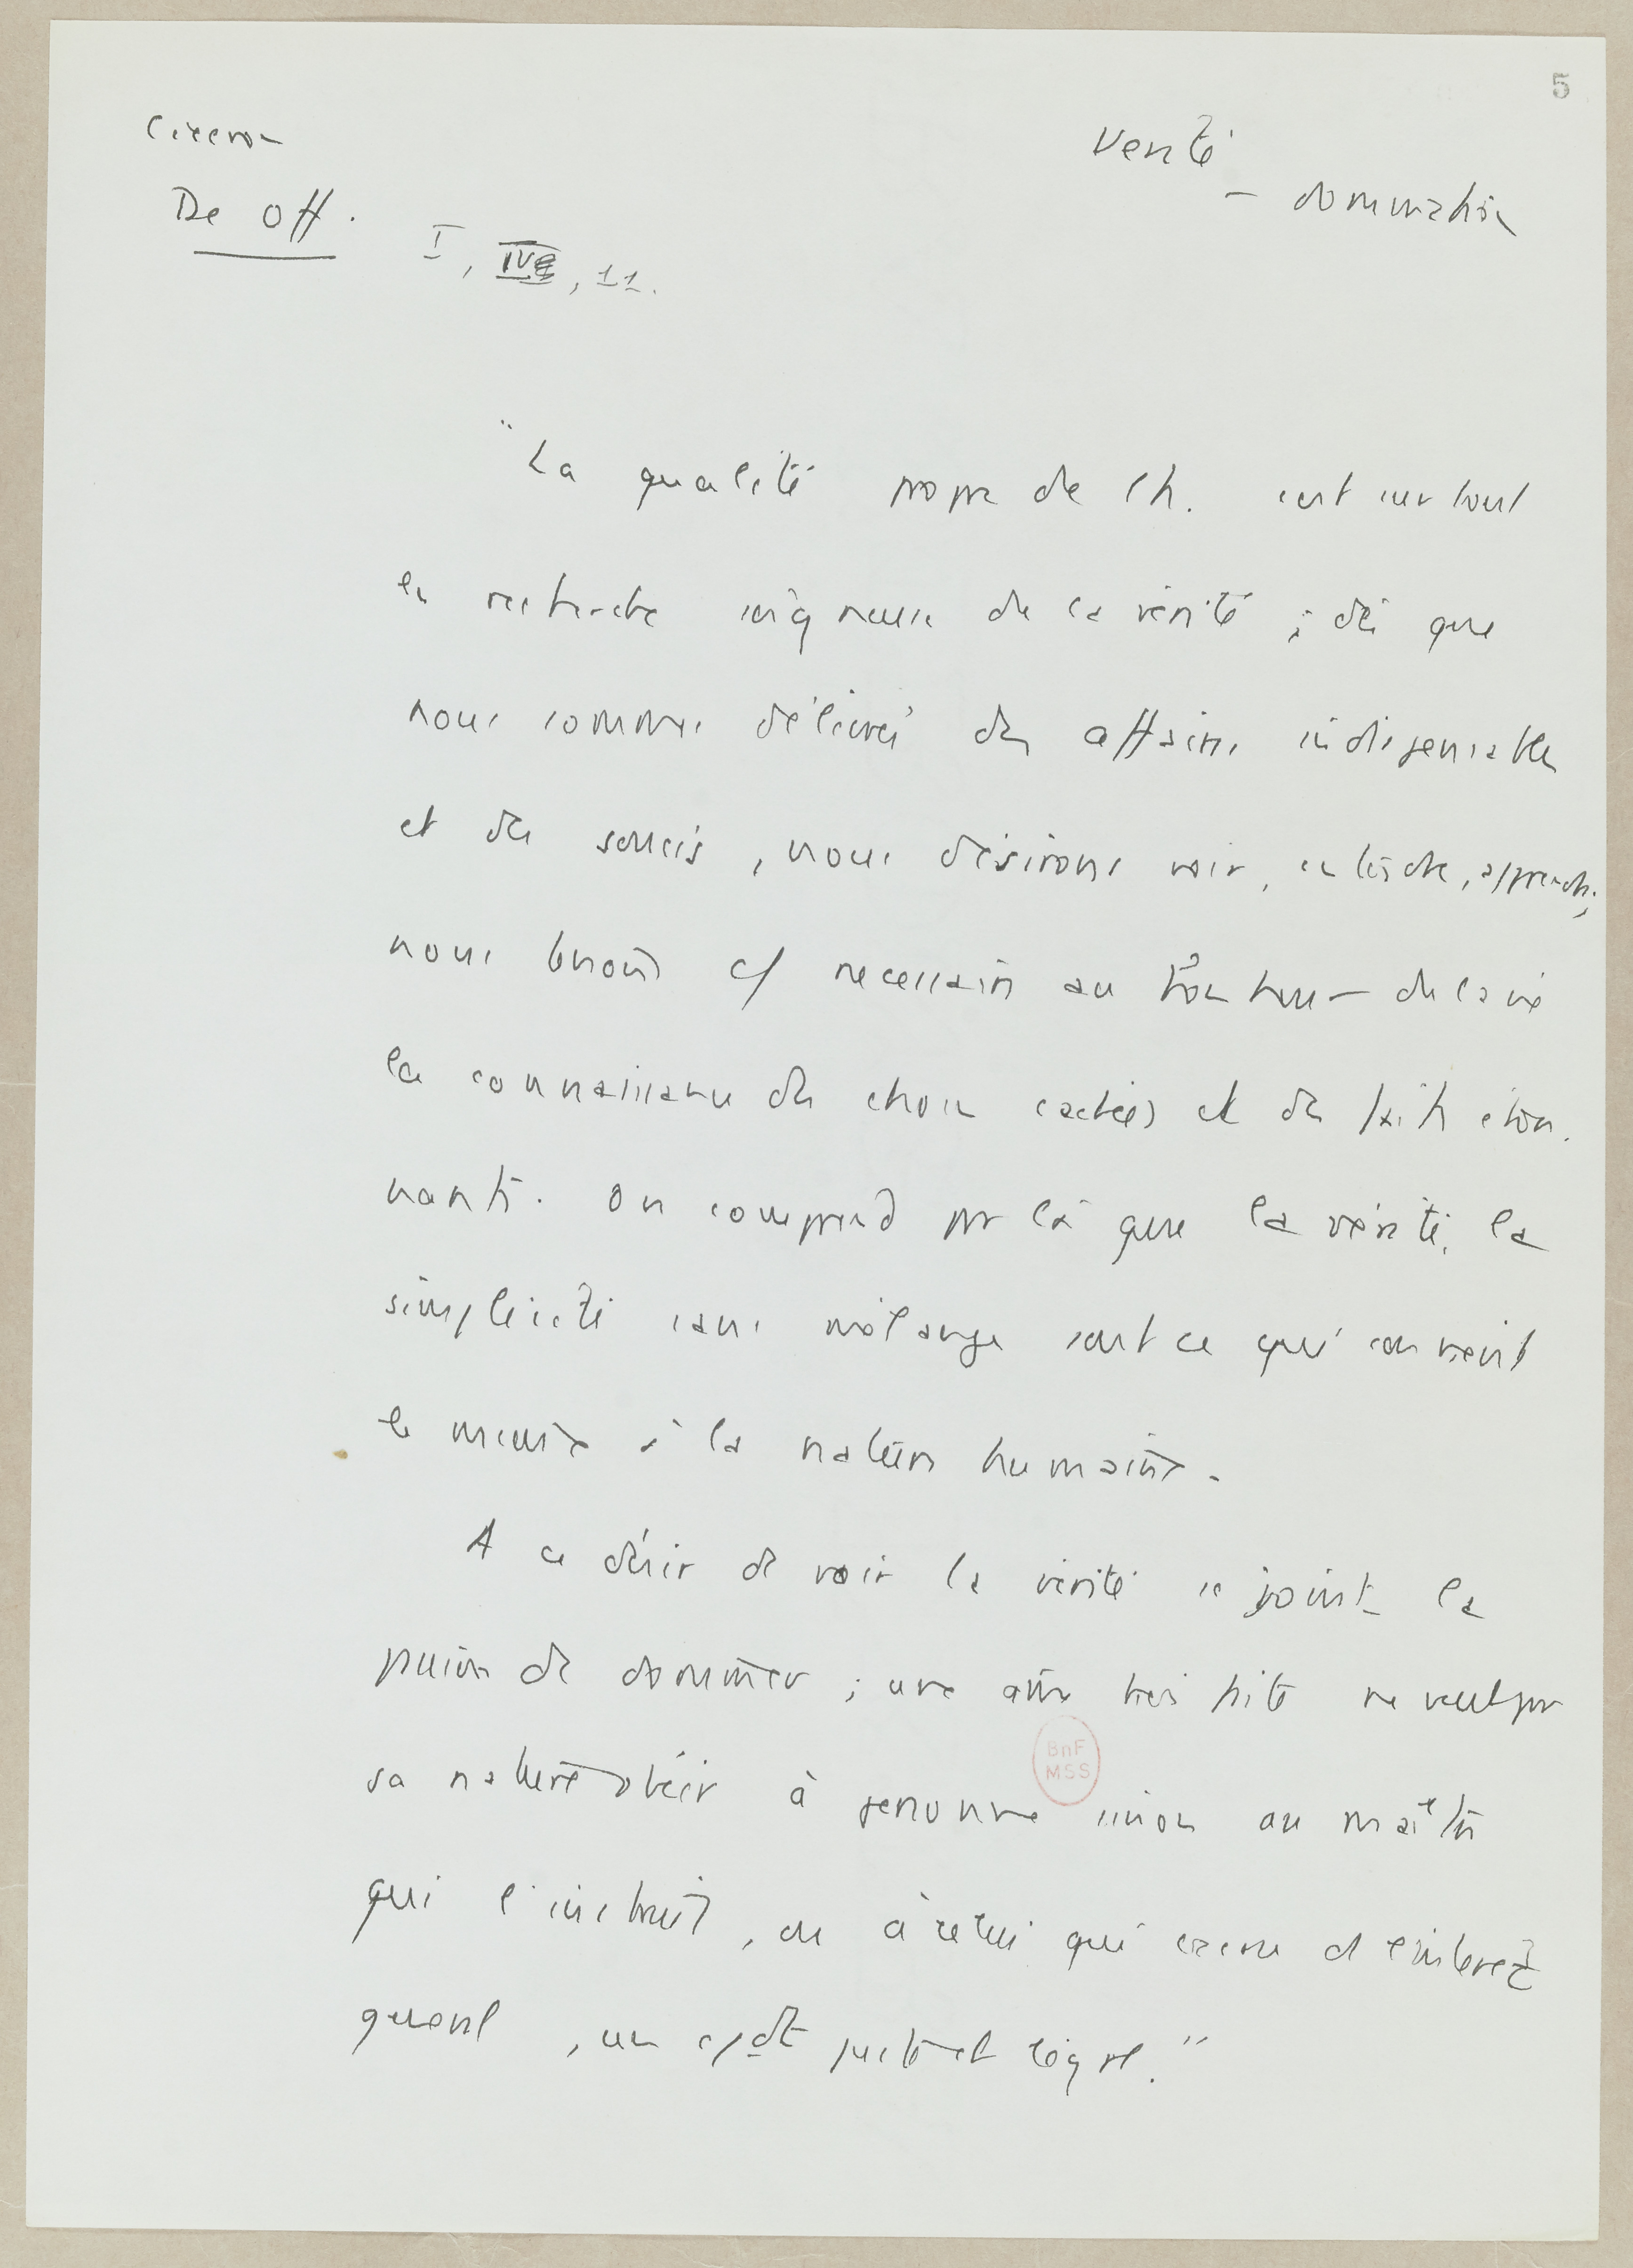 5
Ciceron
Vérité
- domination
De Off.
I, IV, 11.
"La qualité propre de l'h. c'est surtout
la recherche soigneuse de la vérité ; dès que
nous sommes délivrés des affaires indispensables
et des soucis, nous désirons voir, entendre, apprendre ;
nous tenons c/ necessaire au bonheur de la vie
la connaissance des choses cachées et des faits éton-
nants. On comprend par là que la vérité, la
simplicité sans mélange sont ce qui convient
le mieux à la nature humaine.
A ce désir de voir la vérité se joint la
passion de dominer ; une âme très hte ne veut par
sa nature obéir à personne sinon au maître
qui l'instruit, ou à celui qui exerce ds l'intérêt
général, un cdt juste et légal."
BnF
MSS